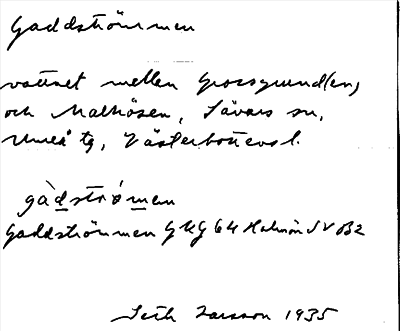 Gaddströmmen
vattnet mellan Grossgrund(en)
och Malhösen, Sävars sn,
Umeå tg, Västerbottens l.
gàdstrø̀men
Gaddströmmen GKG 64 Holmön SV B2
Seth Larsson 1935